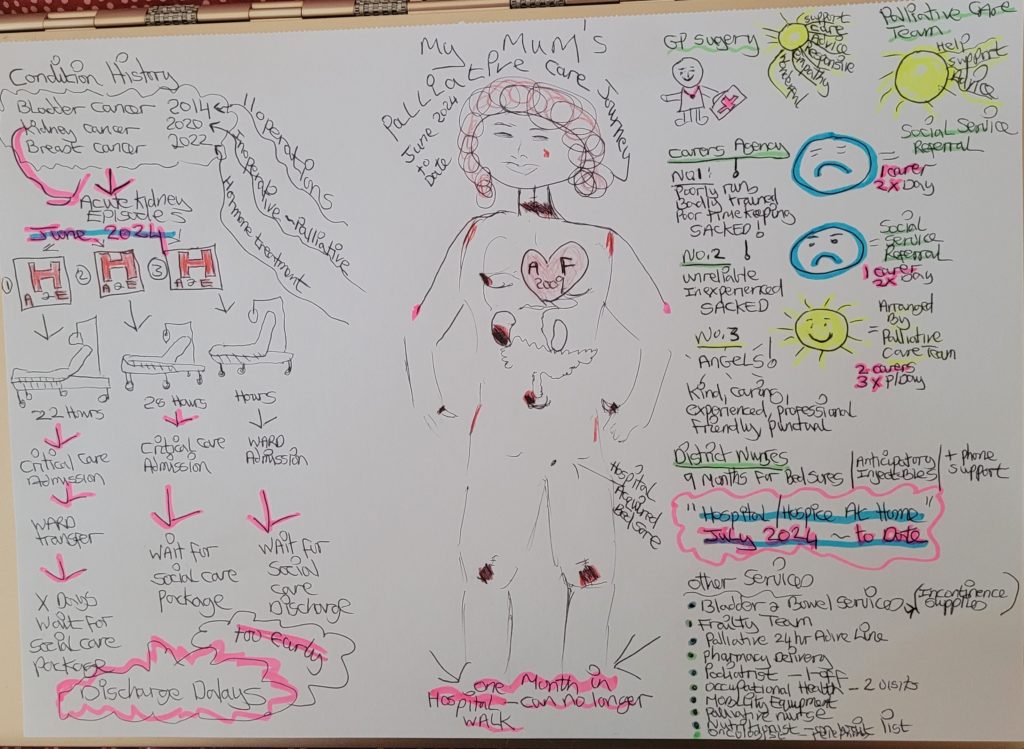 My Mum's
Palliative Care Journey
June 2024
to
Date
Condition History
Bladder cancer 2014
Kidney cancer 2020
Breast cancer 2022
11 operations
Inoperative ~ Palliative
Hormone treatment
Acute Kidney
Episodes
June 2024
1 H A&E
2 H A&E
3 H A&E
22 Hours
Critical Care
Admission
WARD
transfer
X Days
wait for
social care
package
28 Hours
Critical Care
Admission
wait for
social care
package
Hours
WARD
Admission
wait for
Social
care
Discharge
too early
Discharge Delays
A F
2009
Hospital
Acquired
Bedsore
one Month in
Hospital - can no longer
WALK
GP sugery
support
care
advice
responsive
empathy
wonderful
Palliative Care
Team
Help
support
Advice
Carers Agency
No1!
Poorly run
Badly trained
Poor timekeeping
SACKED!
= Social Service
Referral
1 carer
2x Day
No.2
unreliable
Inexperienced
SACKED
= Social
Service
Referral
1 carer
2x Day
No.3
ANGELS!
Kind, caring,
experienced, professional
Friendly, punctual
= Arranged
By
Palliative
Care Team
2 carers
3x p/Day
District Nurses
9 Months For BedSores / Anticipatory Injectables / + phone support
"Hospital/Hospice At Home"
July 2024 ~ to Date
other Services
Bladder & Bowel Services (Incontinence supplies)
Frailty Team
Palliative 24hr Advice Line
Pharmacy Delivery
Podiatrist - 1-off
Occupational Health - 2 visits
Mobility Equipment
Palliative nurse
Nutritionist - on wait list
Oncologist - telephone